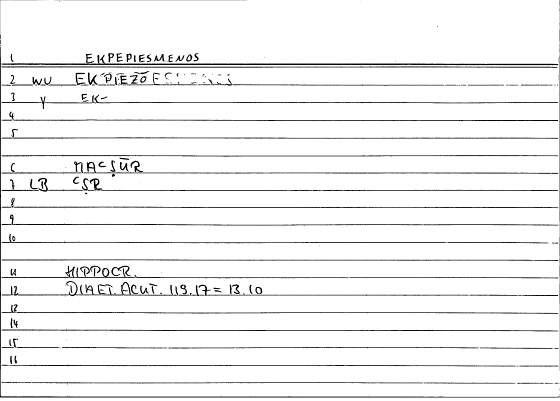 1 EKPEPIESMENOS
2 WU EKPIEZŌ
3 Y EK-
4
5
6 MAᶜṢŪR
7 LB ᶜṢR
8
9
10
11 HIPPOCR.
12 DIAET. ACUT. 119.17 = 13.10
13
14
15
16